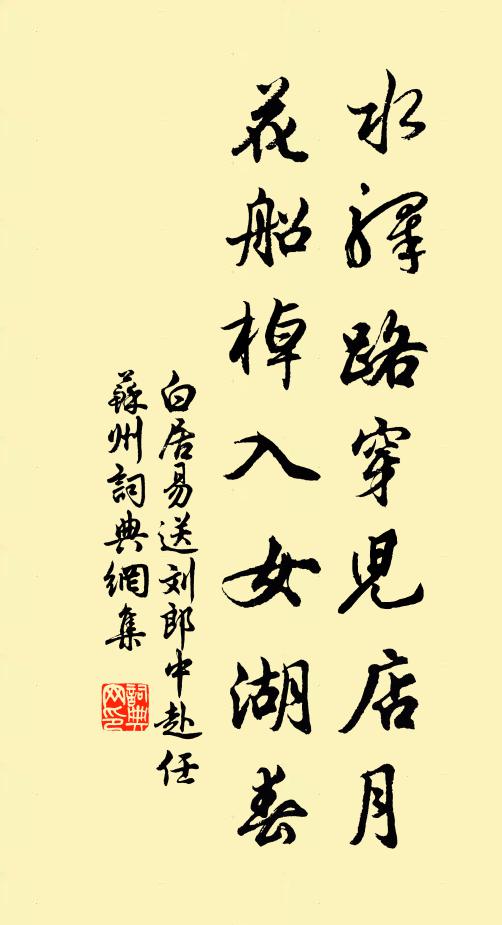 水驛路穿児店月
花船棹入女湖春
白居易送刘郎中赴任
蘇州詞典網集
詞典
网印